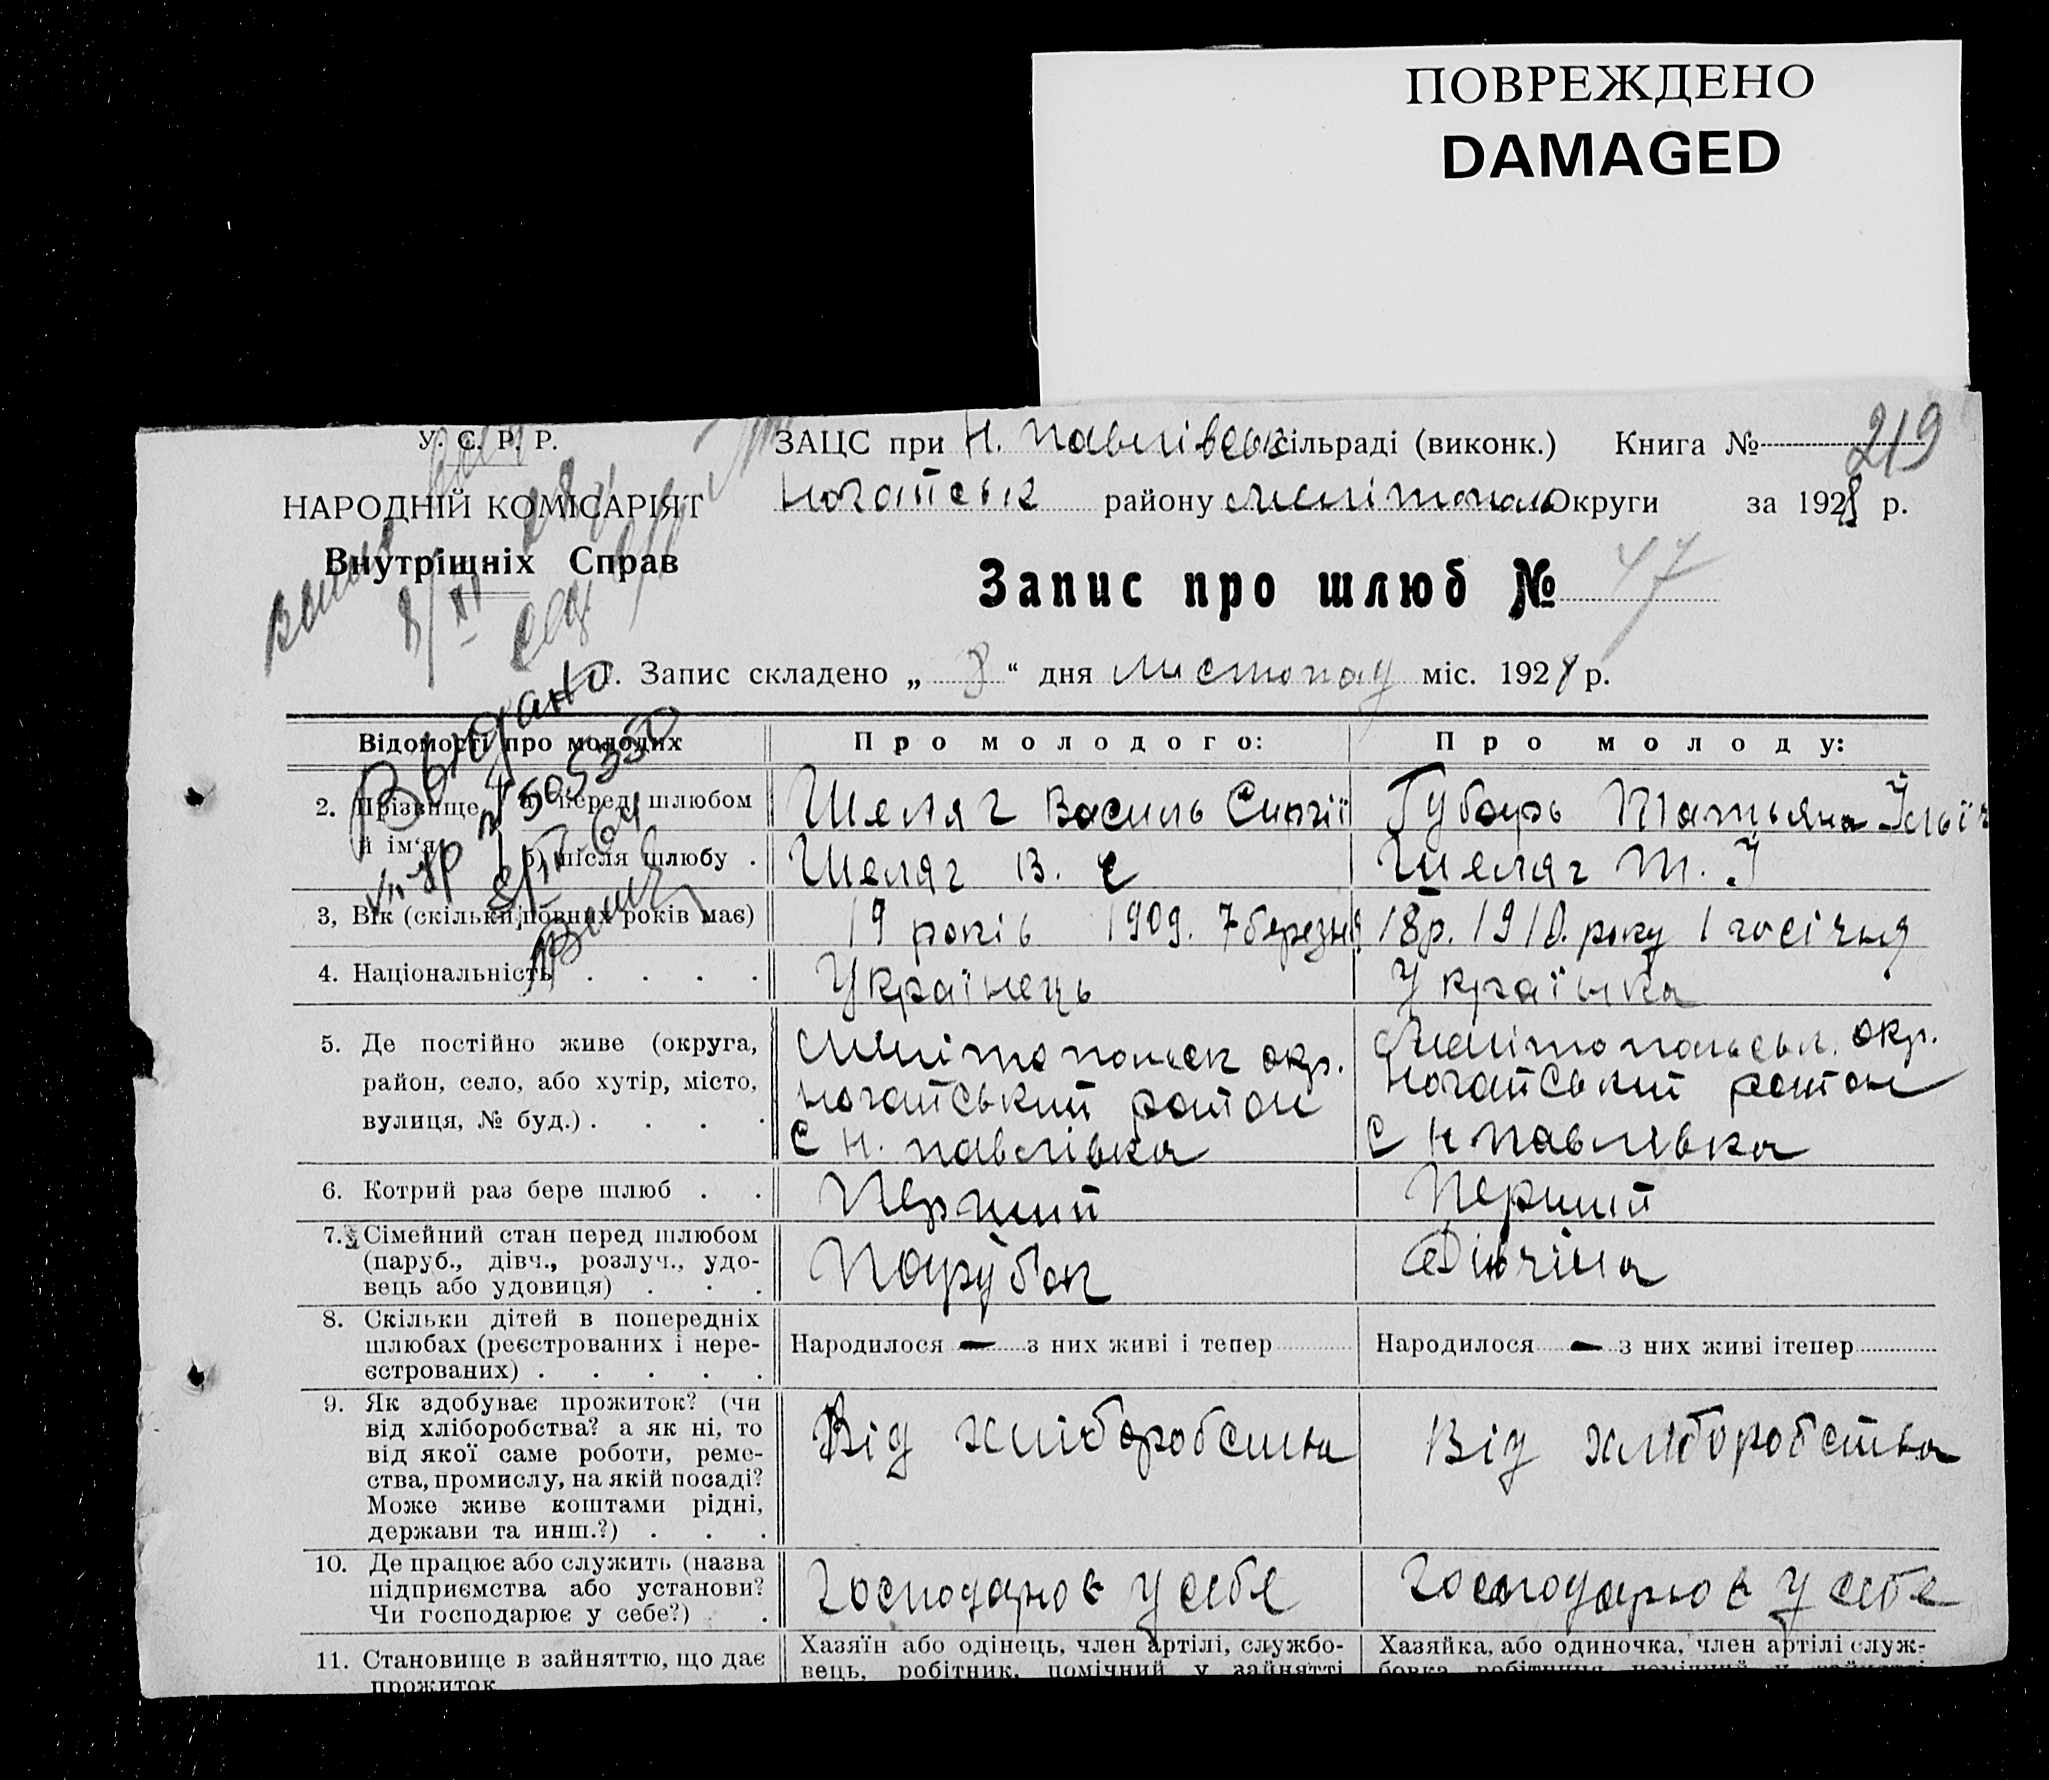 ПОВРЕЖДЕНО
DAMAGED
219
У. С. Р. Р.
ЗАЦС при Н. Павлівськ сільраді (виконк.) Книга №
НАРОДНІЙ КОМІСАРІЯТ
Ногайськ району Мелітополь Округи за 1928 р.
Внутрішніх Справ
8/XI
Запис про шлюб № 47
1. Запис складено „ 8 “ дня листопад міс. 1928 р.
Выдано
№ 505350
Відомості про молодих
Про молодого:
Про молоду:
2. Прізвище й ім‘я
а) перед шлюбом
Шеляг Василь Сиргії
Губарь Татьяна Ільїч
б) після шлюбу .
Шеляг В. С
Шеляг Т. І
3, Вік (скільки повних років має)
19 років 1909. 7 березня
18 р. 1910. року 1 го січня
4. Національність . . . .
Українець
Українка
5. Де постійно живе (округа,
район, село, або хутір, місто,
вулиця, № буд.) . . . .
Мелітопольск окр.
Ногайський район
С Н. Павлівка
Мелітопольськ. окр.
Ногайський район
С Н Павлівка
6. Котрий раз бере шлюб . .
Перший
Перший
7. Сімейний стан перед шлюбом
(паруб., дівч., розлуч., удо-
вець або удовиця) . . .
Парубок
Дівчіна
8. Скільки дітей в попередніх
шлюбах (реєстрованих і нере-
єстрованих) . . . . .
Народилося — з них живі і тепер
Народилося — з них живі ітепер
9. Як здобуває прожиток? (чи
від хліборобства? а як ні, то
від якої саме роботи, реме-
ства, промислу, на якій посаді?
Може живе коштами рідні,
держави та инш.?) . . .
Від хліборобства
Від хліборобства
10. Де працює або служить (назва
підприємства або установи?
Чи господарює у себе?) . .
Господарює у себе
Господарює у себе
11. Становище в зайняттю, що дає
прожиток
Хазяїн або одінець, член артілі, службо-
вець, робітник, помічний у зайнятті
Хазяйка, або одиночка, член артілі служ-
бовка робітниця помічний у зайнятті